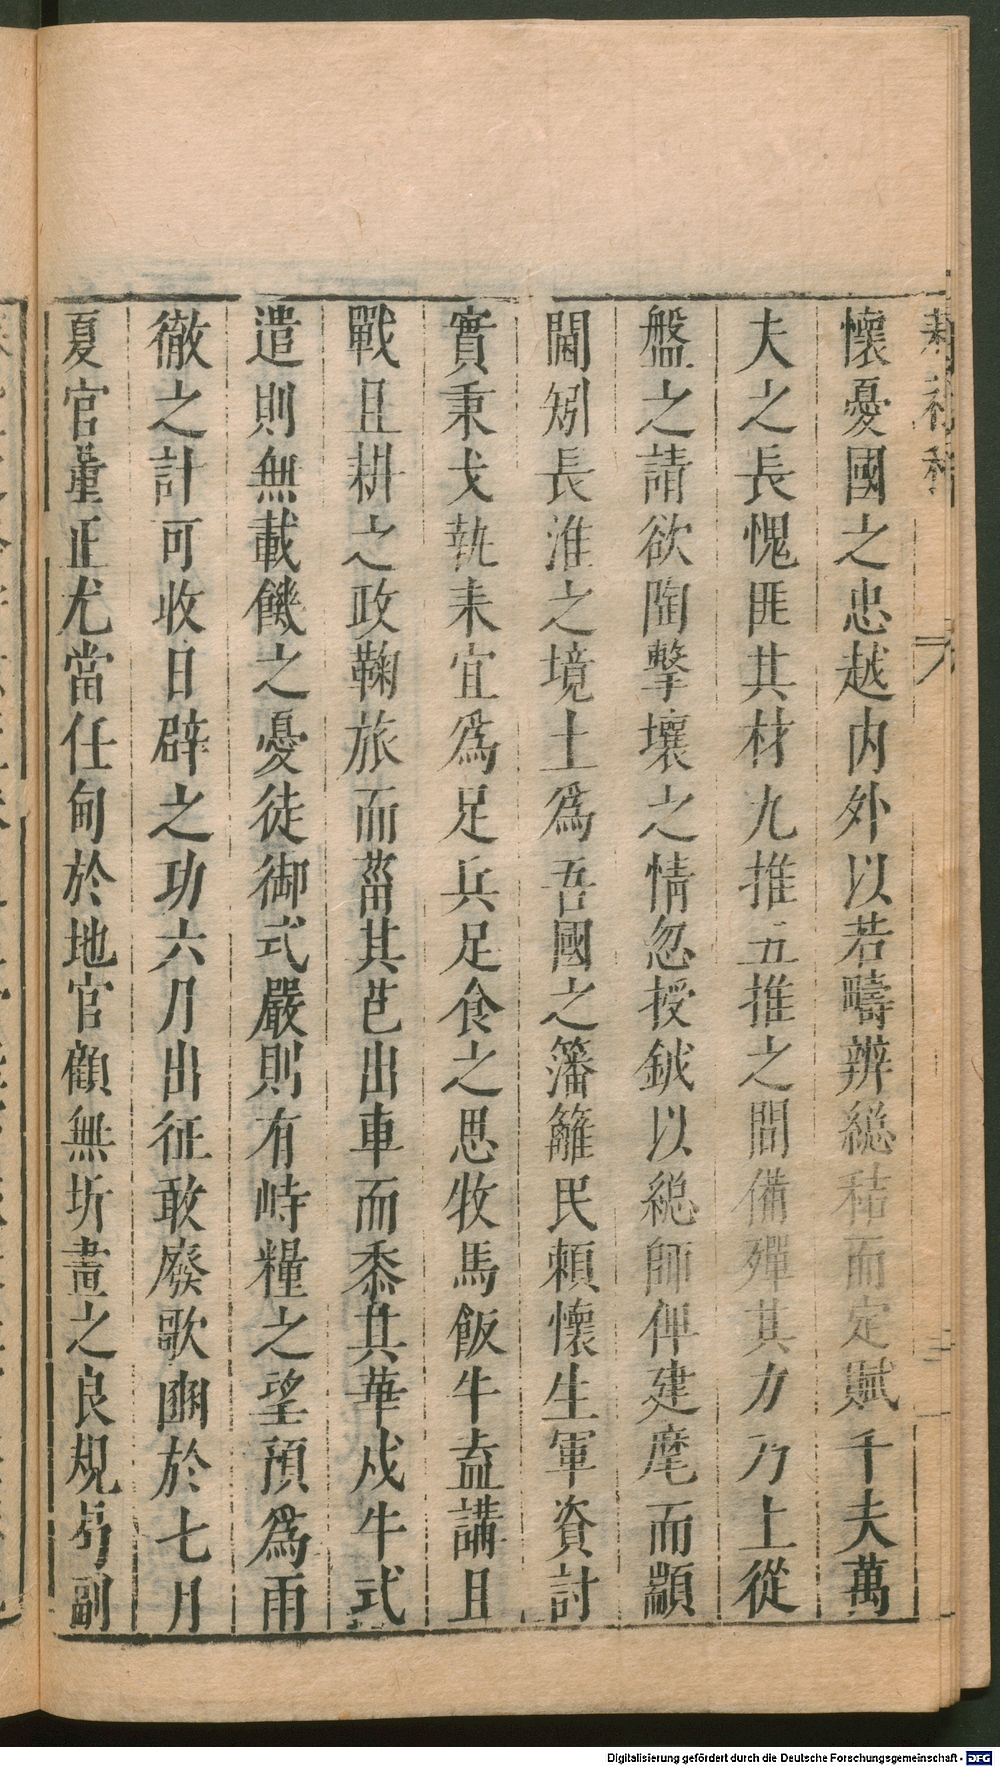 懷憂國之忠越内外以若疇辨緫秸而定賦千夫萬
夫之長愧匪其材九推五推之間備殫其力乃上從
盤之請欲陶擊壤之情忽授鉞以緫師俾建麾而顓
閫矧長淮之境土爲吾國之籓籬民賴懷生軍資討
實秉戈執耒宜爲足兵足食之思牧馬飯牛盍講且
戰且耕之政鞠旅而菑其芑出車而黍其華戍牛式
遣則無載饑之憂徒御式嚴則有峙糧之望預爲雨
徹之計可收日辟之功六月出征敢廢歌豳於七月
夏官董正尤當任甸於地官顧無圻畫之良規曷副
Digitalisierung gefördert durch die Deutsche Forschungsgemeinschaft - DFG